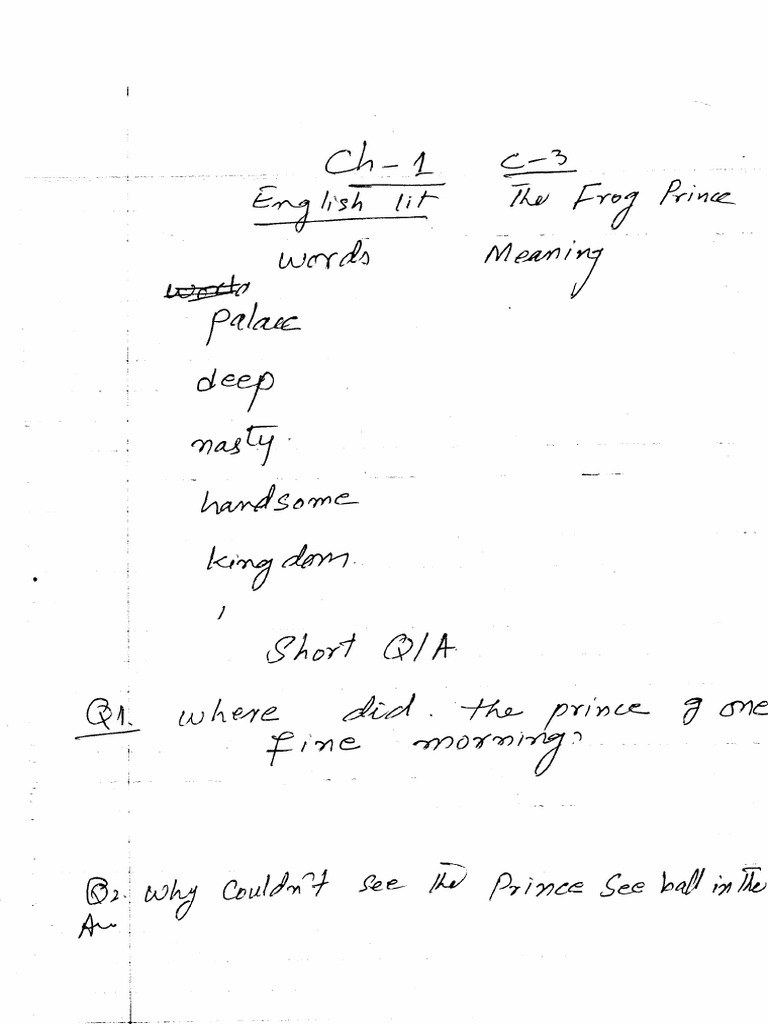 Ch-1 C-3
English lit The Frog Prince
words Meaning
palace
deep
nasty.
handsome
kingdom.
Short Q/A
Q1. where did. the prince g one
fine morning?
Q2. why couldn't see the Prince See ball in the